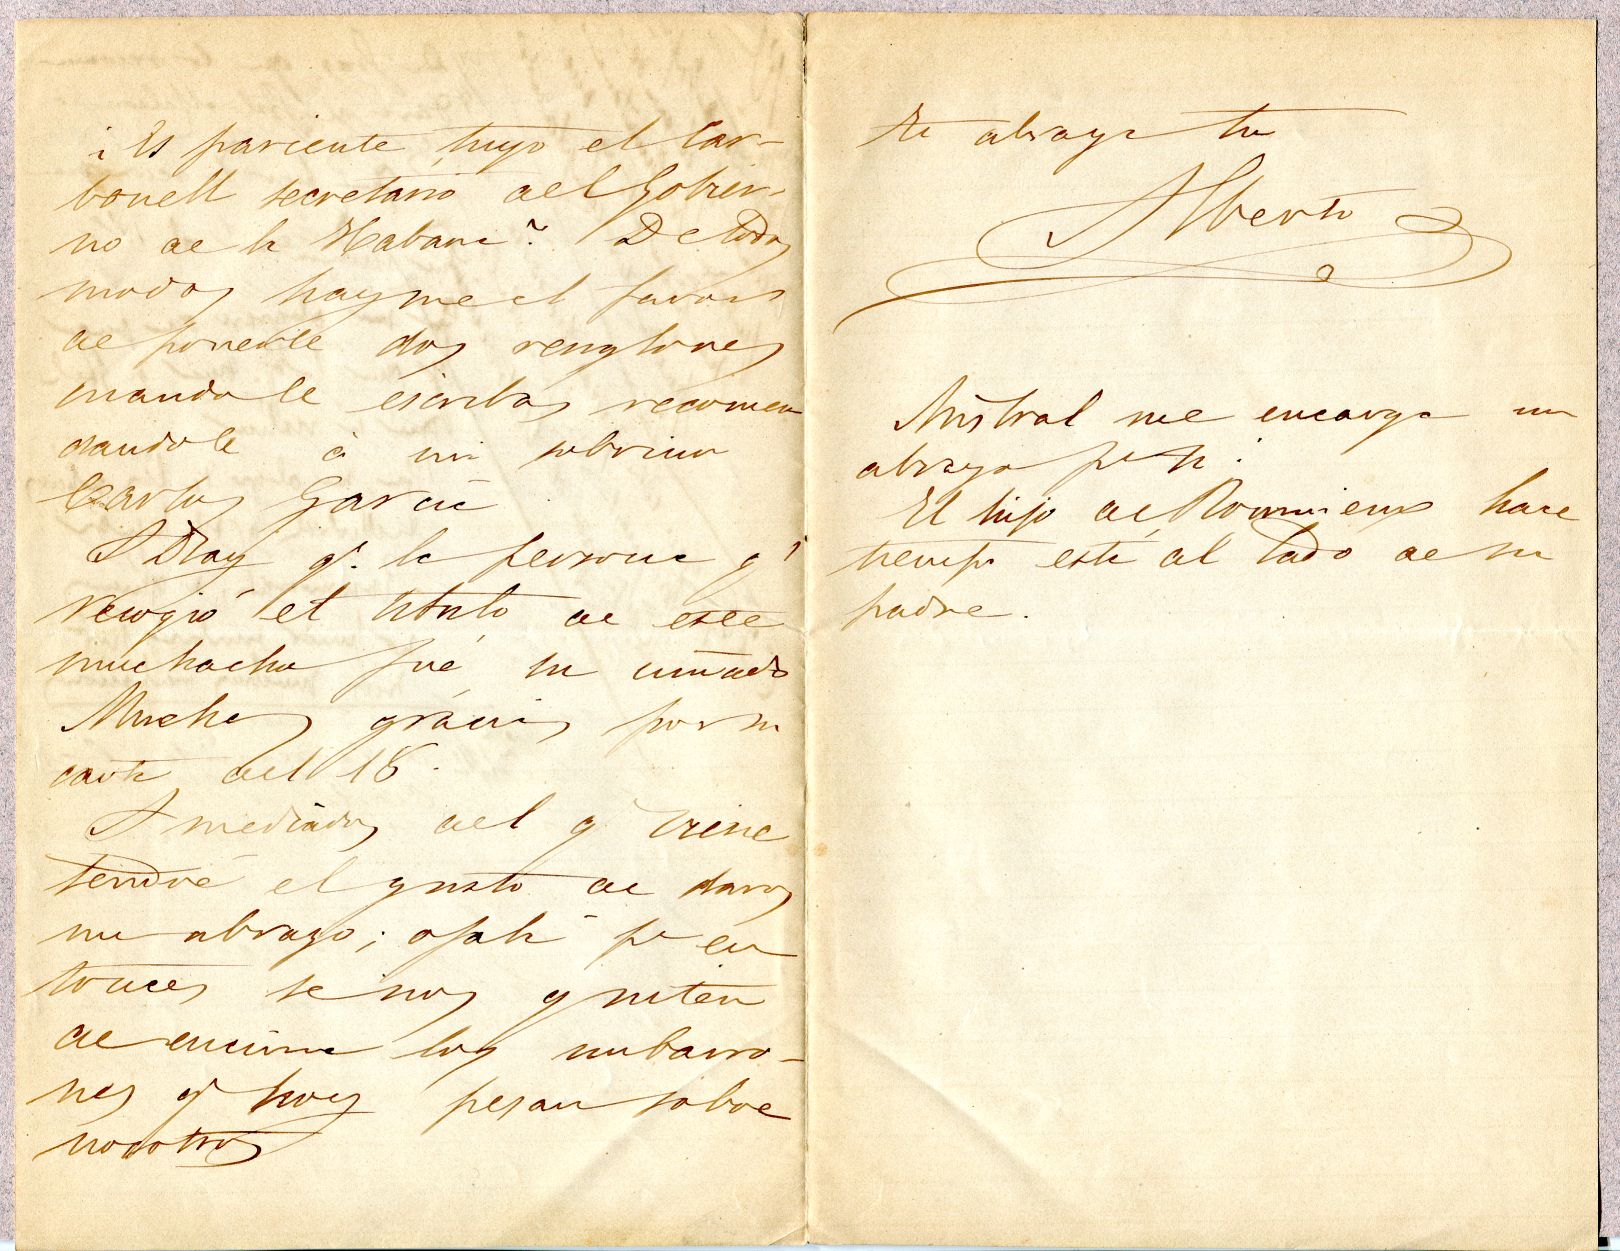 ¿Es pariente tuyo el Car-
bonell secretario del Gobier-
no de la Habana? De todos
modos hayme el favor
de ponerle dos renglones
cuando le escribas recomen
dandole á mi sobrino
Carlos García
A Dray qe. la persona qe
recogió el titulo de este
muchacho fué tu cuñado
Muchas grácias por tu
carta del 18.
A mediados del qe viene
tendré el gusto de daros
un abrazo; ojalá pa en
tonces se nos quiten
de encima los nubarro-
nes qe hoy pesan sobre
nosotros
Te abraza tu
Alberto
Mistral me encarga un
abrazo pa ti.
El hijo de Roumieux hace
tiempo está al lado de su
padre.